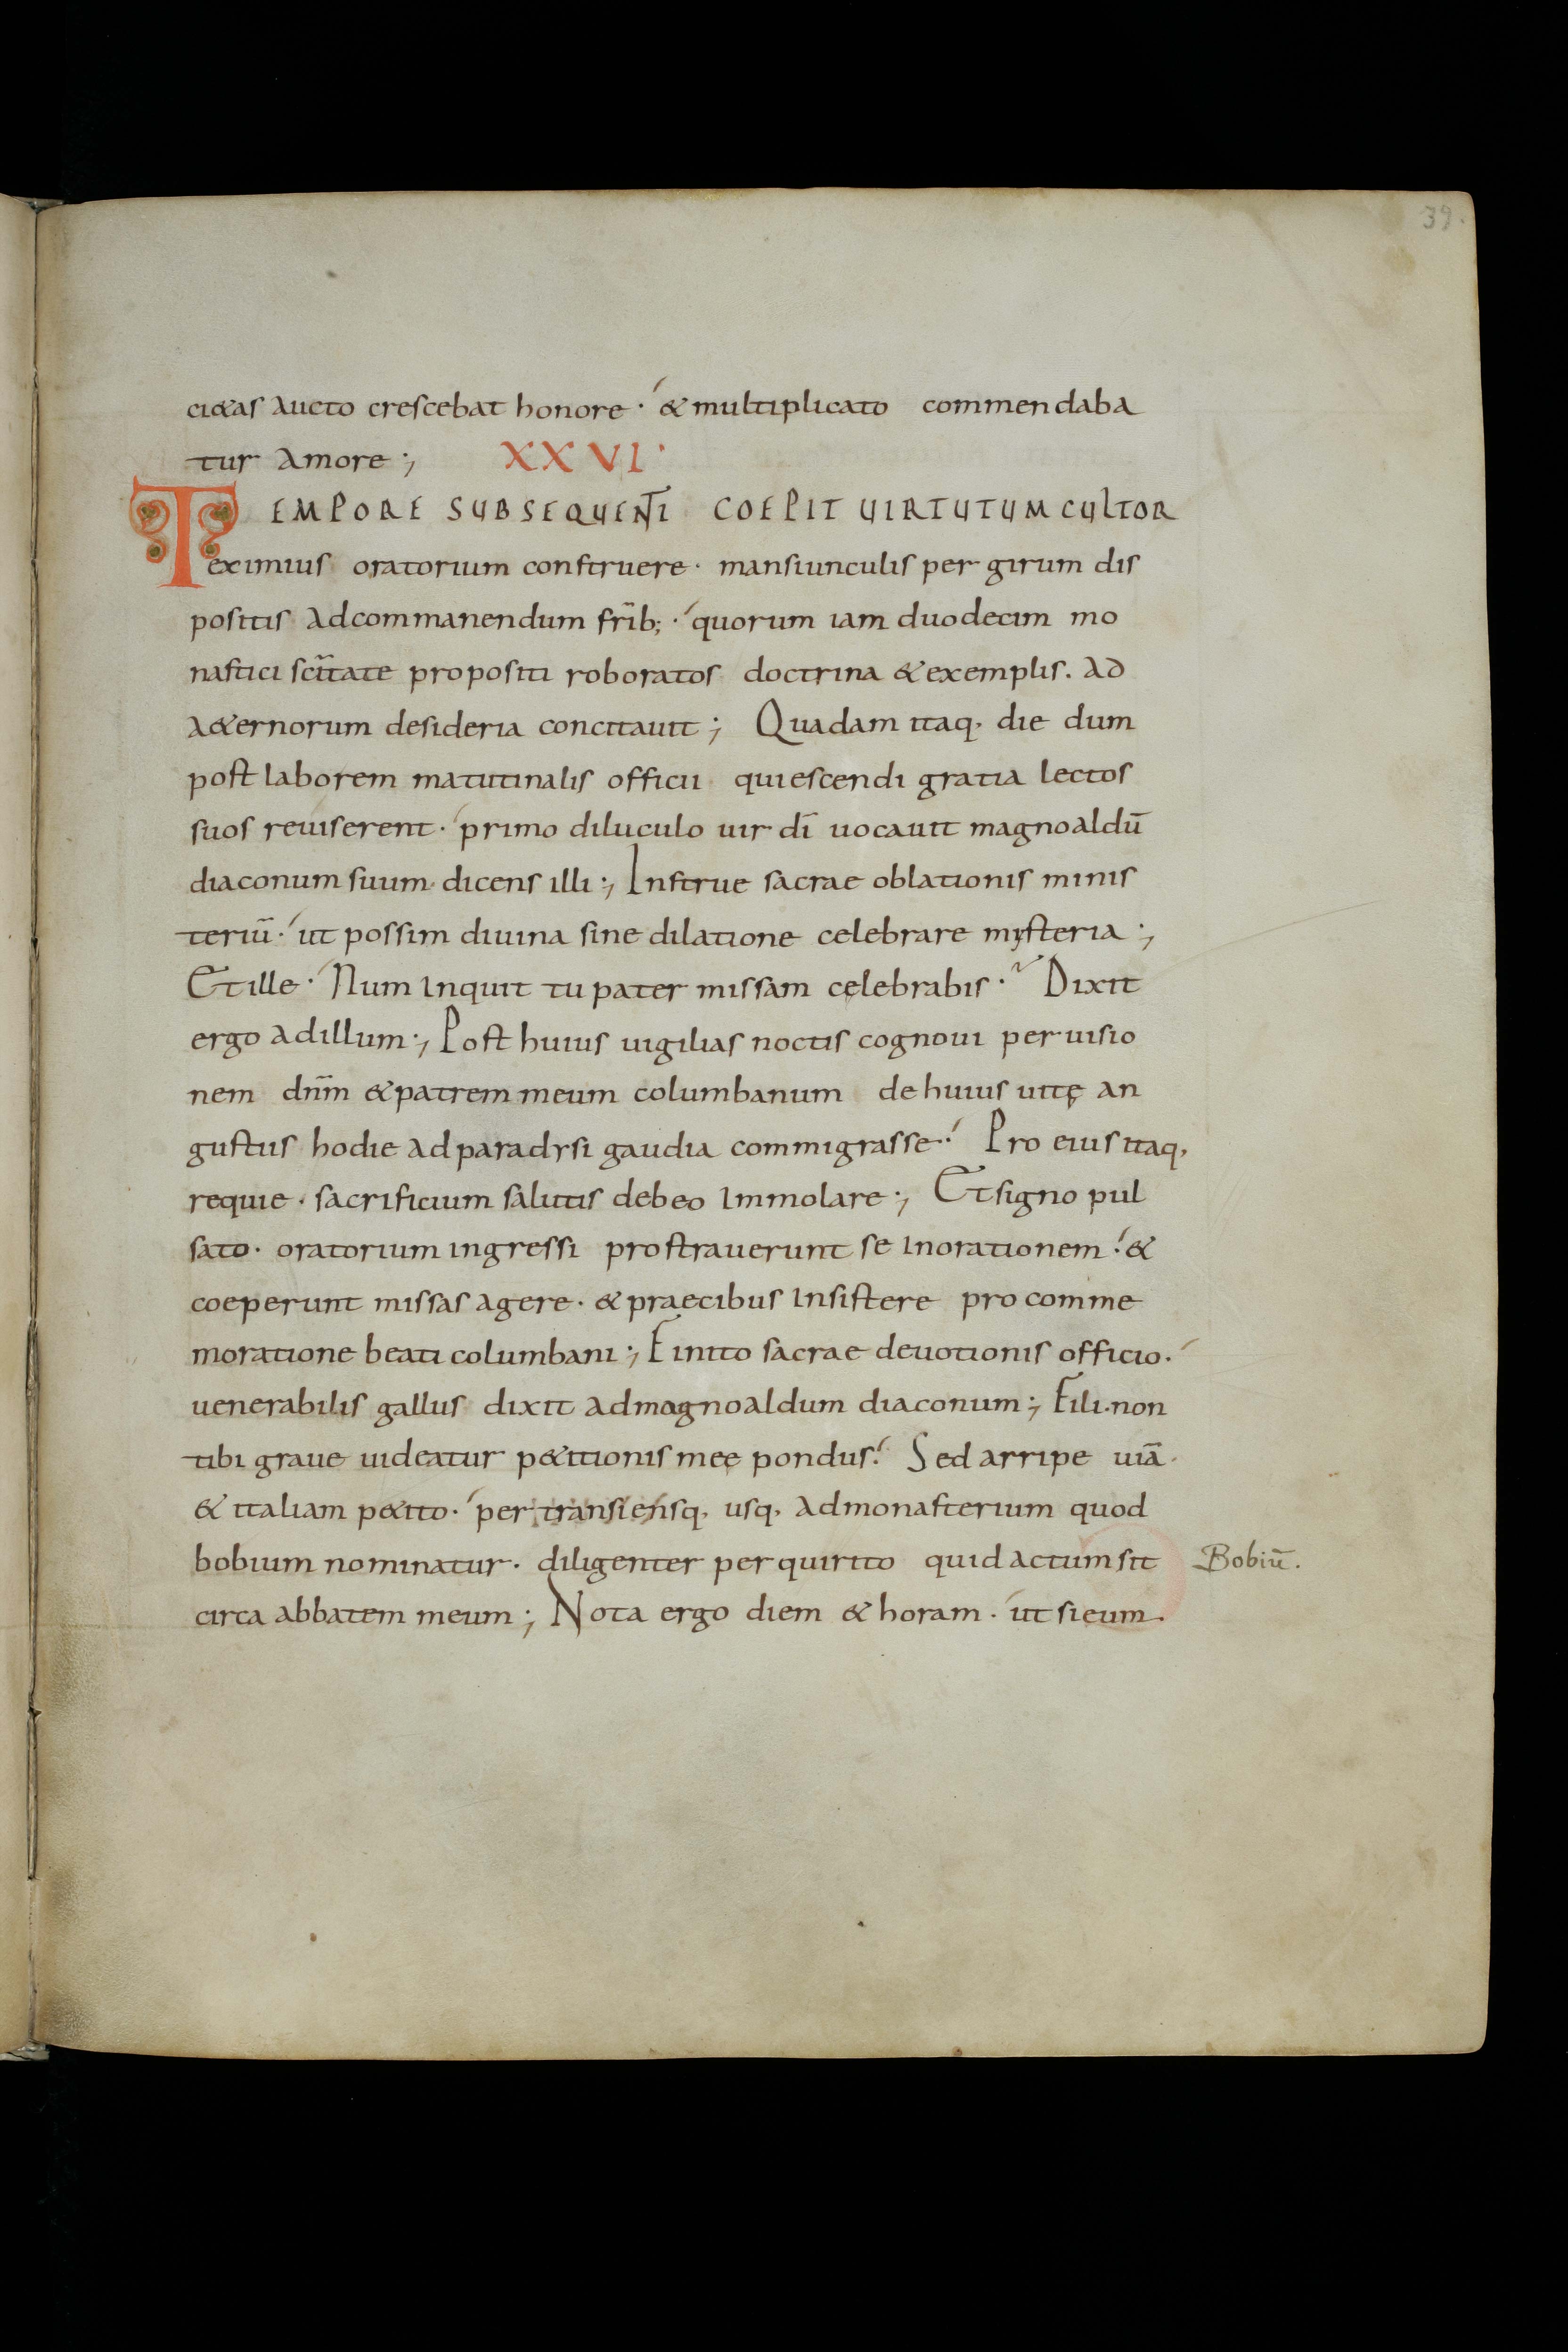 39.
ci&as aucto crescebat honore · & multiplicato commendaba
tur amore ;
XXVI ·
TEMPORE SUBSEQUENTI COEPIT UIRTUTUM CULTOR
eximius oratorium construere · mansiunculis per girum dis
positis adcommanendum fr̄ib; · quorum iam duodecim mo
nastici sc̄itate propositi roboratos doctrina & exemplis . ad
a&ernorum desideria concitauit ; Quadam itaq· die dum
post laborem matutinalis officii quiescendi gratia lectos
suos reuiserent · primo diluculo uir dī uocauit magnoaldū
diaconum suum · dicens illi ; Instrue sacrae oblationis minis
teriū · ut possim diuina sine dilatione celebrare mysteria ;
Et ille · Num inquit tu pater missam cęlebrabis · Dixit
ergo ad illum ; Post huius uigilias noctis cognoui per uisio
nem dn̄m & patrem meum columbanum de huius uitę an
gustiis hodie ad paradysi gaudia commigrasse · Pro eius itaq·
requie · sacrificium salutis debeo immolare ; Et signo pul
sato · oratorium ingressi prostrauerunt se in orationem · &
coeperunt missas agere · & praecibus insistere pro comme
moratione beati columbani ; Finito sacrae deuotionis officio ·
uenerabilis gallus dixit ad magnoaldum diaconum ; Fili · non
tibi graue uideatur p&itionis meę pondus · Sed arripe uiā ·
& italiam p&ito · per transiensq· usq· ad monasterium quod
bobium nominatur · diligenter perquirito quid actum sit
Bobiū.
circa abbatem meum ; Nota ergo diem & horam · ut si eum